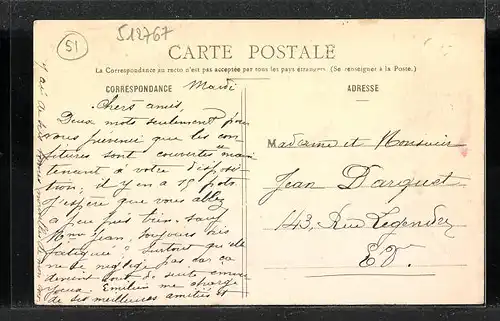 51
512767
CARTE POSTALE
La Correspondance au recto n'est pas acceptée par tous les pays étrangers. (Se renseigner à la Poste.)
CORRESPONDANCE
ADRESSE
Mardi
Chers amis,
Deux mots seulement pour
vous prévenir que les con
fitures sont couvertes main
tenant à votre disposi
tion; il y en a 18 pots
J'espère que vous allez
à peu près bien. sauf
Mme Jean, toujours très
fatiguée surtout qu'elle
ne se néglige pas car ça
devient tout de suite
Emilien me charge
de ses meilleures amitiés et
Madame et Monsieur
Jean Darquet
143, Rue Legendre
EV.